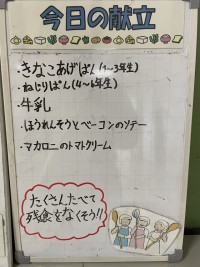 今日の献立
・きなこあげぱん(1~3年生)
・ねじりぱん(4~6年生)
・牛乳
・ほうれんそうとベーコンのソテー
・マカロニのトマトクリーム
たくさんたべて
残食をなくそう!!